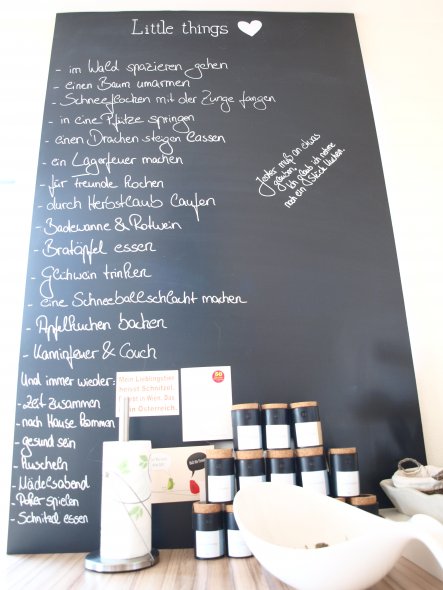 Little things
- im Wald spazieren gehen
- einen Baum umarmen
- Schneeflocken mit der Zunge fangen
- in eine Pfütze springen
- einen Drachen steigen lassen
- ein Lagerfeuer machen
- für Freunde kochen
- durch Herbstlaub laufen
- Badewanne & Rotwein
- Bratäpfel essen
- Glühwein trinken
- eine Schneeballschlacht machen
- Apfelkuchen backen
- Kaminfeuer & Couch
Und immer wieder:
- Zeit zusammen
- nach Hause kommen
- gesund sein
- Kuscheln
- Mädelsabend
- Poker spielen
- Schnitzel essen
Jeder muß an etwas
glauben!
Ich glaub ich nehme
noch ein Stück Kuchen.
Mein Lieblingstier
heisst Schnitzel.
in Wien. Das
in Österreich.
50